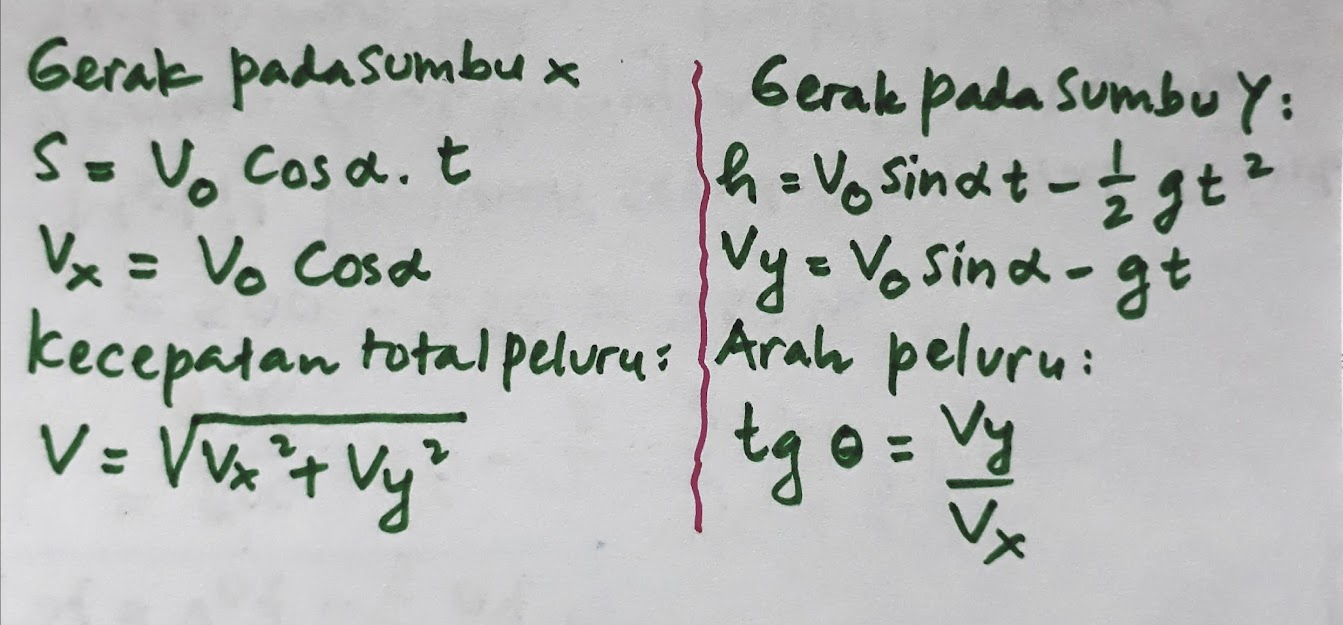 Gerak pada sumbu x
S = V₀ Cos α. t
Vₓ = V₀ Cos α
kecepatan total peluru:
V = √(Vₓ² + Vy²)
Gerak pada Sumbu Y:
h = V₀ Sin α t - 1/2 gt²
Vy = V₀ Sin α - gt
Arah peluru:
tg θ = Vy/Vₓ